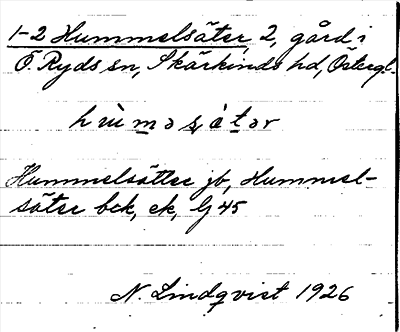 1-2 Hummelsäter, 2, gård i
Ö. Ryds sn, Skärkinds hd, Östergl.
hùməsạ̀tər
Hummelsätter jb, Hummel-
säter bck, ek, Gj 45
N. Lindqvist 1926